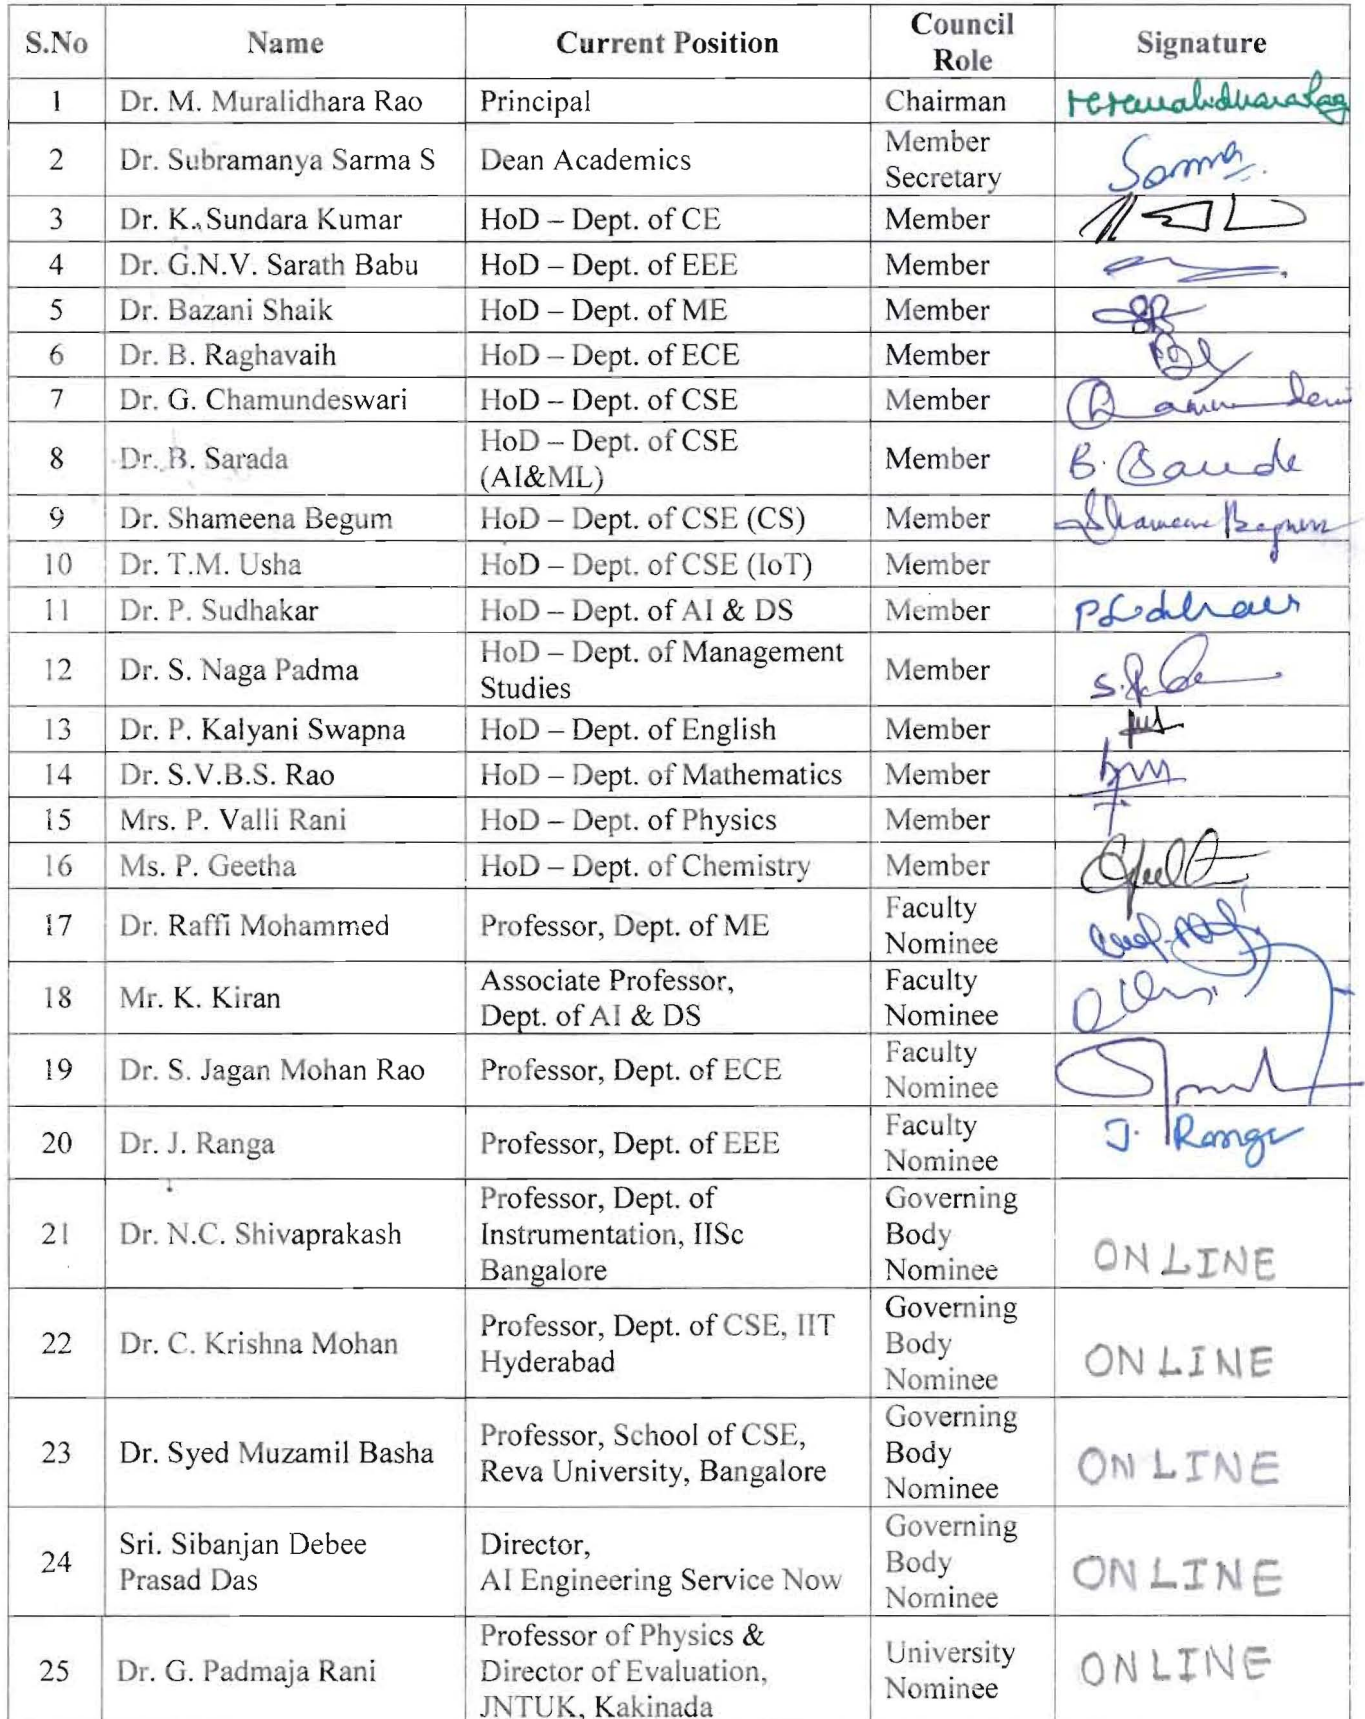 S.No Name Current Position Council Role Signature
1 Dr. M. Muralidhara Rao Principal Chairman
2 Dr. Subramanya Sarma S Dean Academics Member Secretary Sarma
3 Dr. K. Sundara Kumar HoD – Dept. of CE Member
4 Dr. G.N.V. Sarath Babu HoD – Dept. of EEE Member
5 Dr. Bazani Shaik HoD – Dept. of ME Member
6 Dr. B. Raghavaih HoD – Dept. of ECE Member
7 Dr. G. Chamundeswari HoD – Dept. of CSE Member
8 Dr. B. Sarada HoD – Dept. of CSE (AI&ML) Member
9 Dr. Shameena Begum HoD – Dept. of CSE (CS) Member Shameena Begum
10 Dr. T.M. Usha HoD – Dept. of CSE (IoT) Member
11 Dr. P. Sudhakar HoD – Dept. of AI & DS Member
12 Dr. S. Naga Padma HoD – Dept. of Management Studies Member
13 Dr. P. Kalyani Swapna HoD – Dept. of English Member
14 Dr. S.V.B.S. Rao HoD – Dept. of Mathematics Member
15 Mrs. P. Valli Rani HoD – Dept. of Physics Member
16 Ms. P. Geetha HoD – Dept. of Chemistry Member
17 Dr. Raffi Mohammed Professor, Dept. of ME Faculty Nominee
18 Mr. K. Kiran Associate Professor, Dept. of AI & DS Faculty Nominee
19 Dr. S. Jagan Mohan Rao Professor, Dept. of ECE Faculty Nominee
20 Dr. J. Ranga Professor, Dept. of EEE Faculty Nominee J. Ranga
21 Dr. N.C. Shivaprakash Professor, Dept. of Instrumentation, IISc Bangalore Governing Body Nominee ONLINE
22 Dr. C. Krishna Mohan Professor, Dept. of CSE, IIT Hyderabad Governing Body Nominee ONLINE
23 Dr. Syed Muzamil Basha Professor, School of CSE, Reva University, Bangalore Governing Body Nominee ONLINE
24 Sri. Sibanjan Debee Prasad Das Director, AI Engineering Service Now Governing Body Nominee ONLINE
25 Dr. G. Padmaja Rani Professor of Physics & Director of Evaluation, JNTUK, Kakinada University Nominee ONLINE